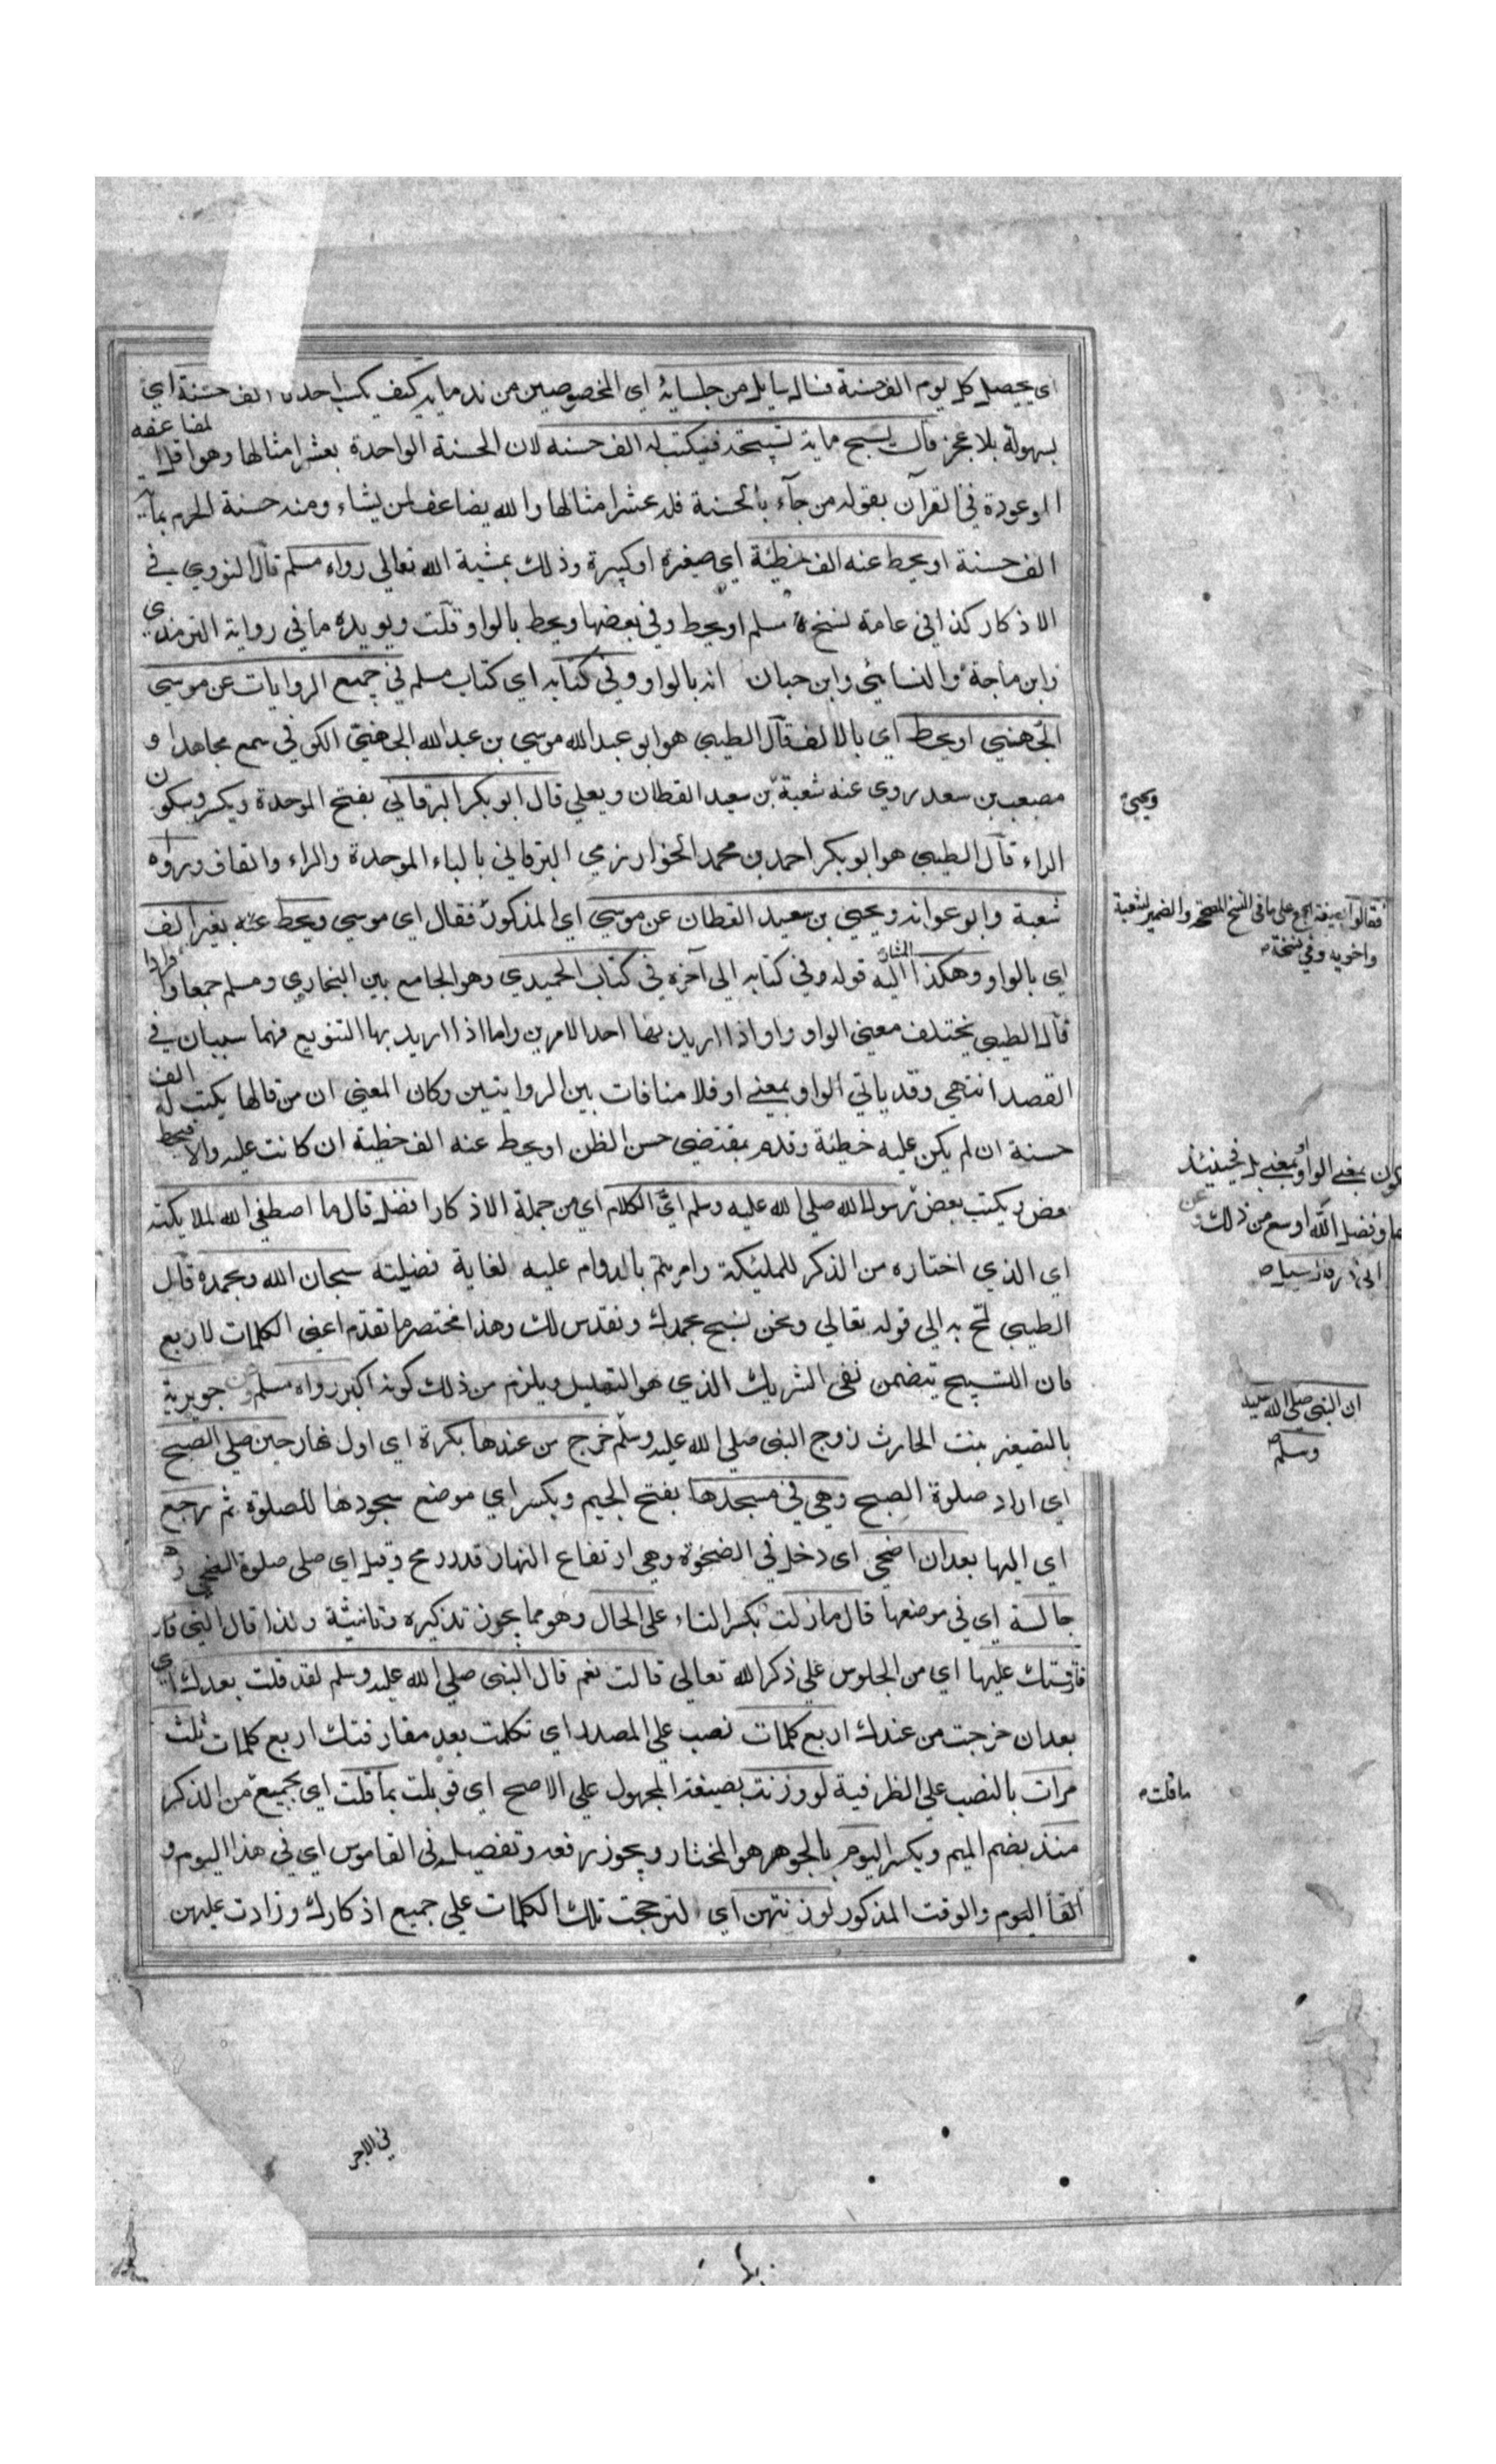 اي يحصل كل يوم الف حسنة فساله سايل من جلسايه اي المخصوصين من ندمايه كيف يكسب احدنا الف حسنة اي
بسهولة بلا عجز قال يسبح ماية تسبيحة فيكتب له الف حسنه لان الحسنة الواحدة بعشر امثالها وهو اقل المضاعفه
الموعودة في القرآن بقوله من جآء بالحسنة فله عشر امثالها والله يضاعف لمن يشاء ومنه حسنة الحرم بماية
الف حسنة او يحط عنه الف خطيئة اي صغيرة او كبيرة وذلك بمشية الله تعالي رواه مسلم قال النووي في
الاذكار كذا في عامة نسخ مسلم او يحط وفي بعضها ويحط بالواو قلت ويويده ما في رواية الترمذي
وابن ماجة والنسائي وابن حبان انه بالواو وفي كتابه اي كتاب مسلم في جميع الروايات عن موسي
الجهني او يحط اي بالالف قال الطيبي هو ابو عبد الله موسي بن عبد الله الجهني الكوفي سمع مجاهدا و
مصعب بن سعد روي عنه شعبة بن سعيد القطان ويعلي قال ابو بكر البرقاني بفتح الموحدة ويكسر وسكون
ويحيى
الراء قال الطيبي هو ابو بكر احمد بن محمد الخوارزمي البرقاني بالباء الموحدة والراء والقاف ورواه
شعبة وابو عوانه ويحيي بن سعيد القطان عن موسي اي المذكور فقال اي موسي ويحط عنه بغير الف
فقالوا بصيغة الجمع على ما في النسخ المصححة والضمير لشعبة
واخويه وفي نسخة
اي بالواو وهكذا المشار اليه قوله وفي كتابه الي آخره في كتاب الحميدي وهو الجامع بين البخاري ومسلم جمعا وافرادا
قال الطيبي يختلف معني الواو واو اذا اريد بها احد الامرين واما اذا اريد بها التنويع فهما سببان في
القصد انتهي وقد ياتي الواو بمعني او فلا منافات بين الروايتين وكان المعني ان من قالها يكتب له الف
حسنة ان لم يكن عليه خطيئة وقدم بمقتضي حسن الظن او يحط عنه الف خطيئة ان كانت عليه والا فيحط
بمعني الواو او بمعني بل فحينئذ
وفضل الله اوسع من ذلك وعن
ابي ذر قال سيل
بعض ويكتب بعض رسول الله صلي الله عليه وسلم اي الكلام اي من جملة الاذكار افضل قال ما اصطفي الله لملايكته
اي الذي اختاره من الذكر للمليكة وامرهم بالدوام عليه لغاية فضيلته سبحان الله وبحمده قال
الطيبي لمح به الي قوله تعالي ونحن نسبح بحمدك ونقدس لك وهذا مختصر ما تقدم اعني الكلمات لاربع
فان التسبيح يتضمن نفي الشريك الذي هو التهليل ويلزم من ذلك كونه اكبر رواه مسلم وعن جويرية
ان النبي صلي الله عليه
وسلم
بالتصغير بنت الحارث زوج النبي صلي الله عليه وسلم خرج من عندها بكرة اي اول نهار حين صلي الصبح
اي اراد صلوة الصبح وهي في مسجدها بفتح الجيم ويكسر اي موضع سجودها للصلوة ثم رجع
اي اليها بعد ان اضحي اي دخل في الضحوة وهي ارتفاع النهار قدر رمح وقيل اي صلى صلوة الضحي وهي
جالسة اي في موضعها قال ما زلت بكسر التاء على الحال وهو مما يجوز تذكيره وتانيثه ولذا قال التي
فارقتك عليها اي من الجلوس علي ذكر الله تعالي قالت نعم قال النبي صلي الله عليه وسلم لقد قلت بعدك اي
بعد ان خرجت من عندك اربع كلمات نصب علي المصدر اي تكلمت بعد مفارقتك اربع كلمات ثلث
مرات بالنصب علي الظرفية لو وزنت بصيغة المجهول علي الاصح اي قوبلت بما قلت اي بجميع من الذكر
ما قلت
منذ بضم الميم ويكسر اليوم بالجر هو المختار ويجوز رفعه وتفصيله في القاموس اي في هذا اليوم و
اليوم والوقت المذكور لوزنتهن اي لترجحت تلك الكلمات علي جميع اذكارك وزادت عليهن
في الاجر